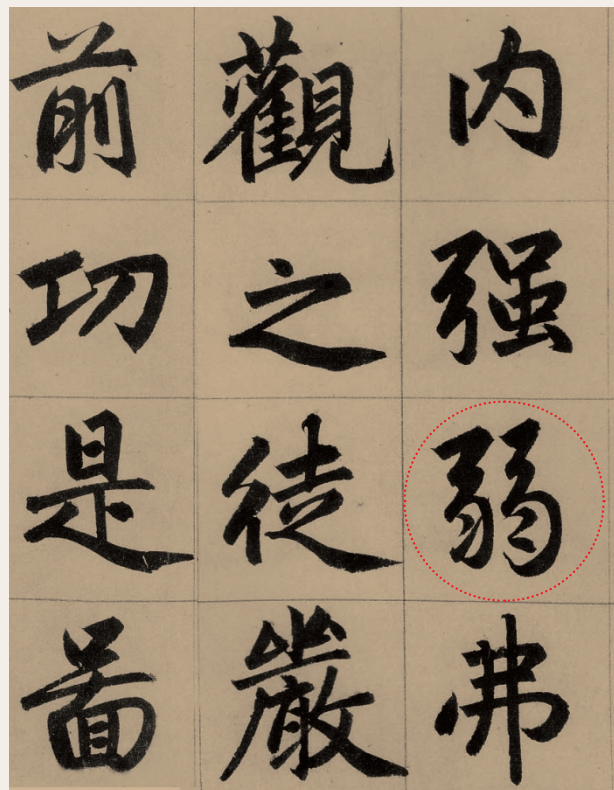 内强弱弗
觀之徒嚴
前功是啚